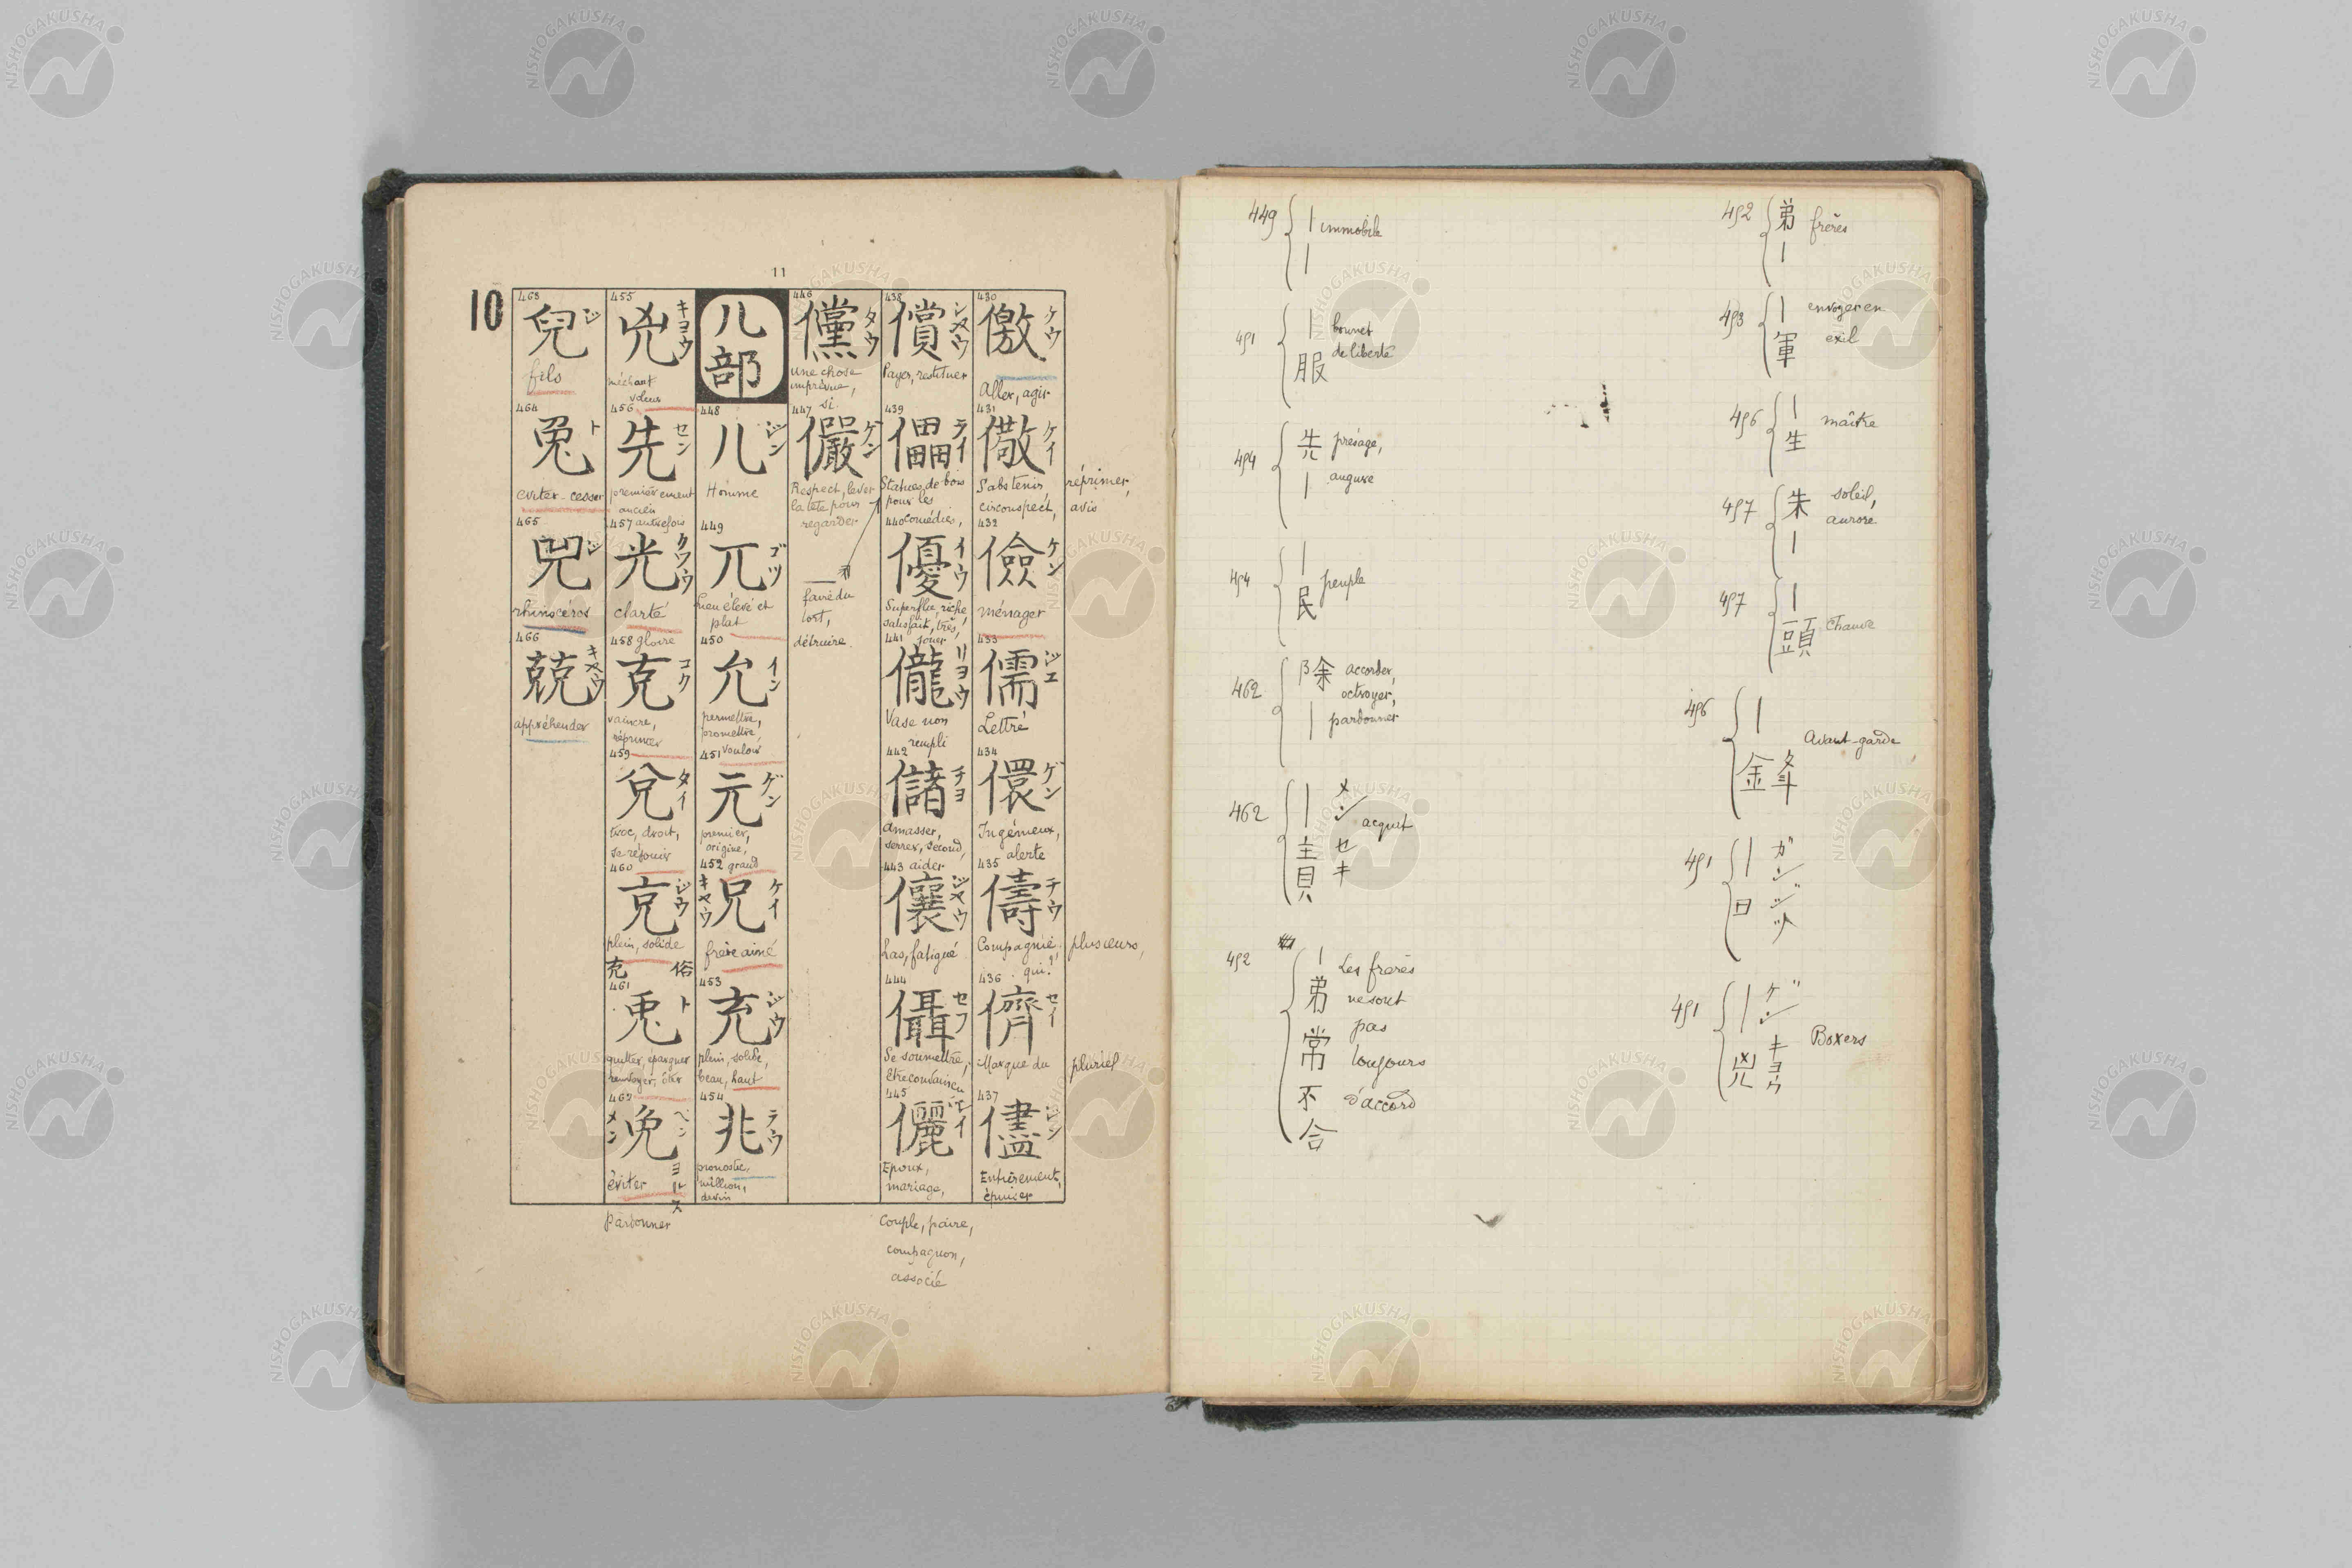 11
10
430
儌
ケウ
Aller, agir
431
儆
ケイ
S'abstenir, réprimer,
circonspect, avis
432
儉
ケン
ménager
433
儒
ジエ
Lettré
434
儇
ゲン
Ingénieux,
alerte
435
儔
チウ
Compagnie, plusieurs,
qui?
436
儕
セイ
Marque du pluriel
437
儘
ジン
Entièrement,
épuiser
438
償
シヤウ
Payer, restituer
439
儡
ライ
Statues de bois
pour les
comédies,
440
優
イウ
Superflu, riche,
satisfait, très,
jouer
441
儱
リヨウ
Vase non
rempli
442
儲
チヨ
Amasser,
serrer, second,
aider
443
儴
ジヤウ
Las, fatigué
444
儑
セフ
Se soumettre,
être convaincu
445
儷
レイ
Epoux,
mariage,
Couple, paire,
compagnon,
associé
446
儻
タウ
Une chose
imprévue,
si
447
儼
ゲン
Respect, lever
la tête pour
regarder
faire du
tort,
détruire
儿部
448
儿
ジン
Homme
449
兀
ゴツ
Lieu élevé et
plat
450
允
イン
permettre,
promettre,
vouloir
451
元
ゲン
premier,
origine,
grand
452
兄
ケイ
キヤウ
frère ainé
453
充
ジウ
plein, solide,
beau, haut
454
兆
テウ
pronostic,
million,
devin
455
兇
キヨウ
méchant
voleur
456
先
セン
premièrement
ancien
autrefois
457
光
クワウ
clarté
gloire
458
克
コク
vaincre,
réprimer
459
兌
タイ
troc, droit,
se réjouir
460
兗
ジウ
plein, solide
充 俗
461
兎
ト
quitter, épargner
renvoyer, ôter
462
免
ベン
メン
ヨルス
éviter
Pardonner
463
兒
ジ
fils
464
兔
ト
eviter - cesser
465
兕
ジ
rhinocéros
466
兢
キヤウ
appréhender
449 | immobile
|
451 | bonnet
服 de liberté
454 先 présage,
| augure
454 |
民 peuple
462 除 accorder,
octroyer,
| pardonner
462 | メン acquit
責 セキ
452 | Les frères
弟 ne sont
pas
常 toujours
不 d'accord
合
452 弟 frères
|
453 | envoyer en
軍 exil
456 | maître
生
457 朱 soleil,
| aurore
457 |
頭 Chauve
456 |
鋒 Avant-garde
451 | ガン
日 ジツ
451 | ゲン
兇 キヨウ
Boxers